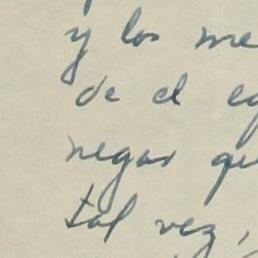 y los me
de el eq
negar qu
tal vez,